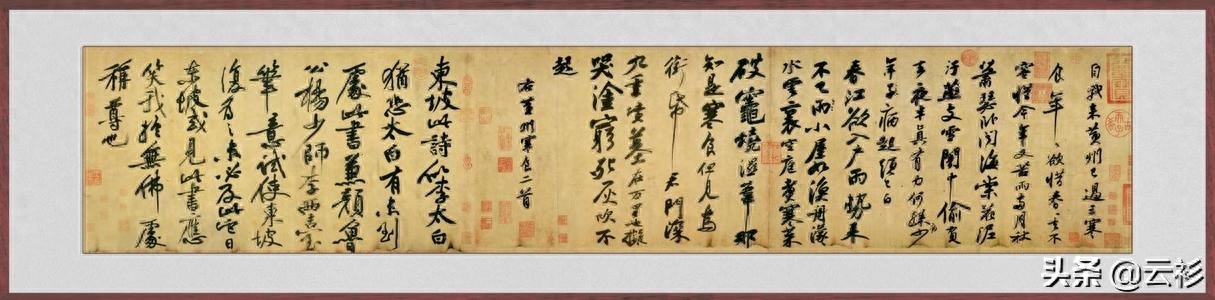 自我来黄州已過三寒
食年〻欲惜春〻去不
容惜今年又苦雨兩月秋
蕭瑟卧聞海棠花泥
汙燕支雪闇中偷負
去夜半真有力何殊少
年子病起頭已白
春江欲入户雨勢来
不已雨小屋如漁舟濛〻
水雲裏空庖煮寒菜
破竈燒濕葦那
知是寒食但見烏
銜帋君門深
九重墳墓在万里也擬
哭塗窮死灰吹不
起
右黄州寒食二首
東坡此詩似李太白
猶恐太白有未到
處此書兼顏魯
公楊少師李西臺
筆意試使東坡
復為之未必及此它日
東坡或見此書應
笑我於無佛處
稱尊也
头条 @云衫